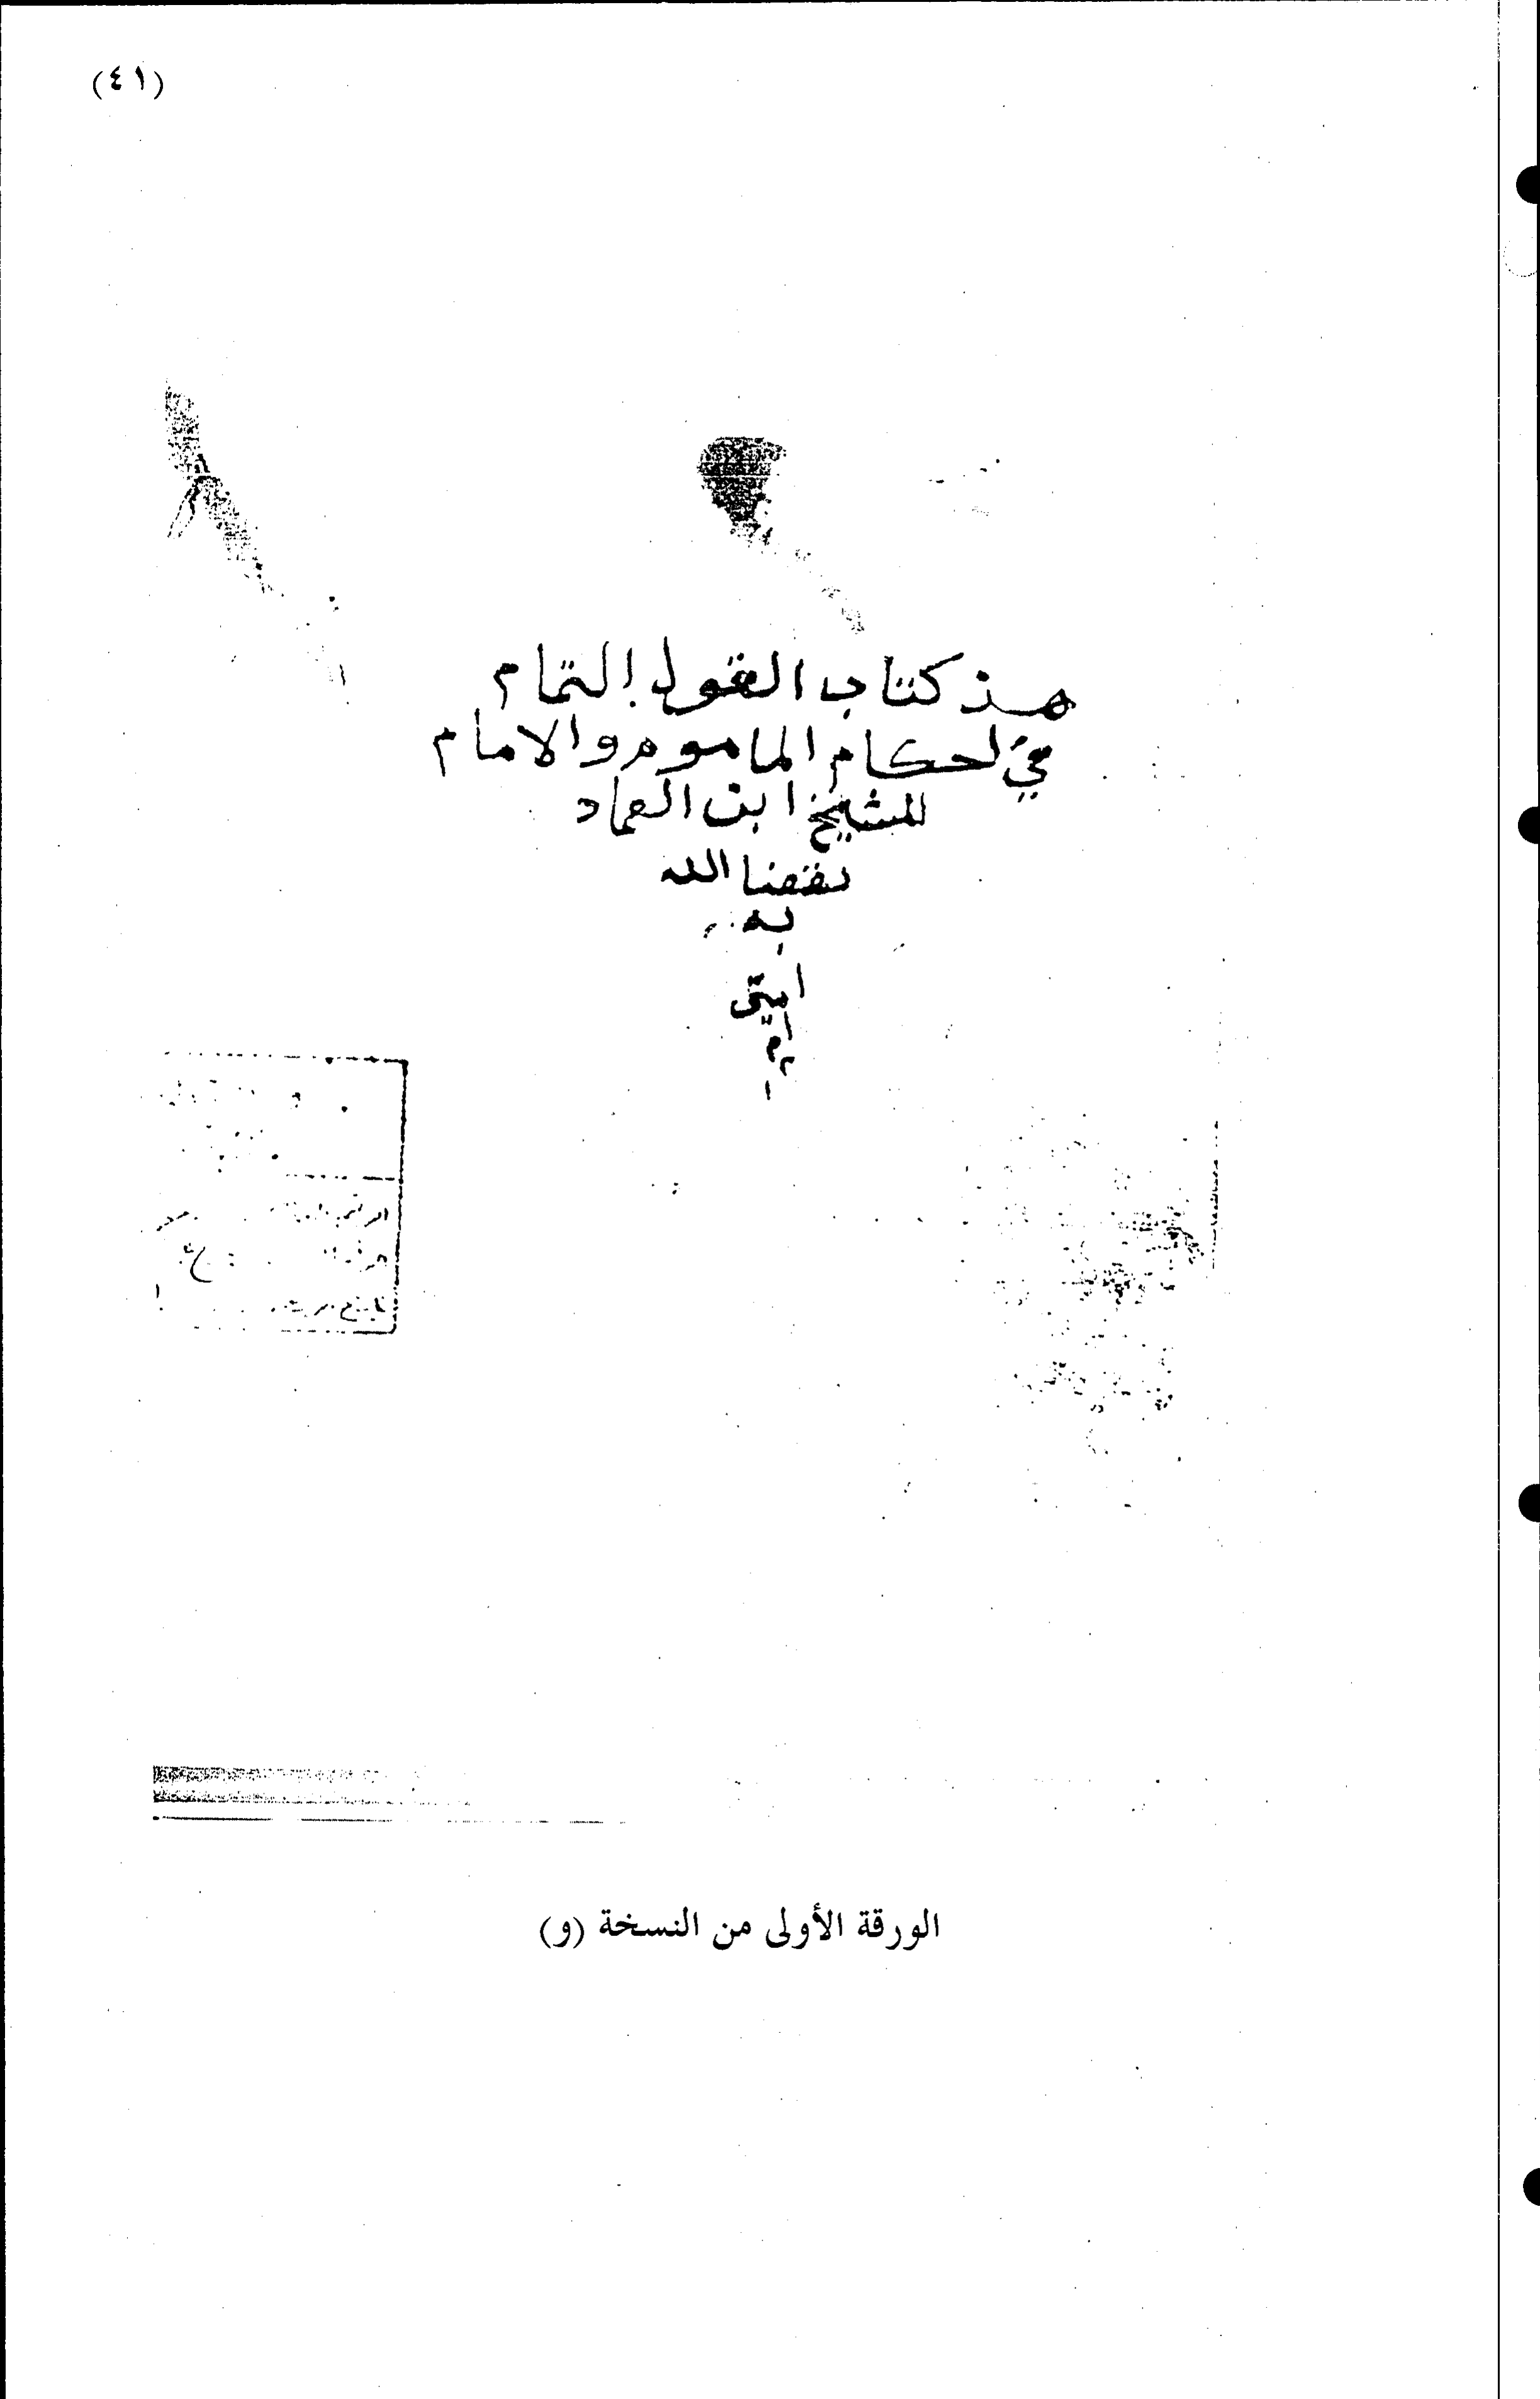 (٤١)
هذ كتاب القول التمام
في احكام الماموم والامام
للشيخ ابن العماد
نفعنا الله
به
امين
الورقة الأولى من النسخة (و)